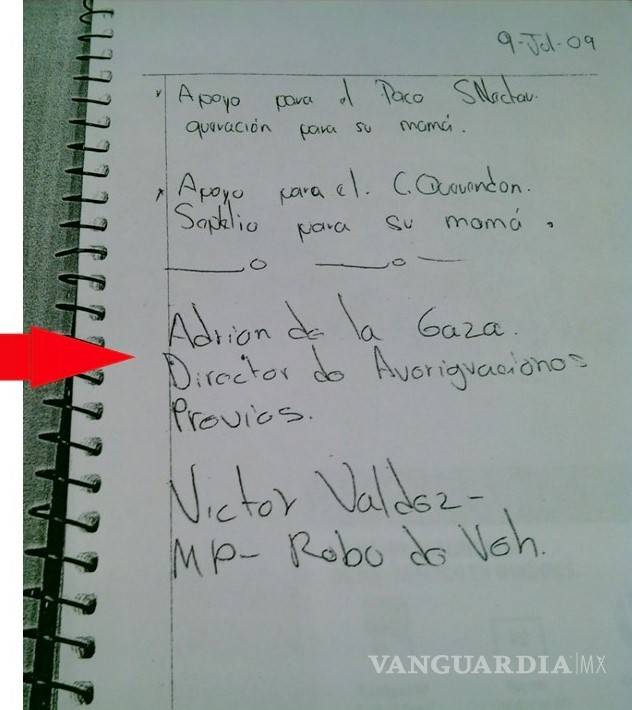 9-Jul-09
Apoyo para el Paco
para su mamá.
Apoyo para el. C.
Sepelio para su mamá.
Adrian de la Gaza.
Director de Averiguaciones
Previas.
Victor Valdez-
MP- Robo de Veh.
VANGUARDIA|MX